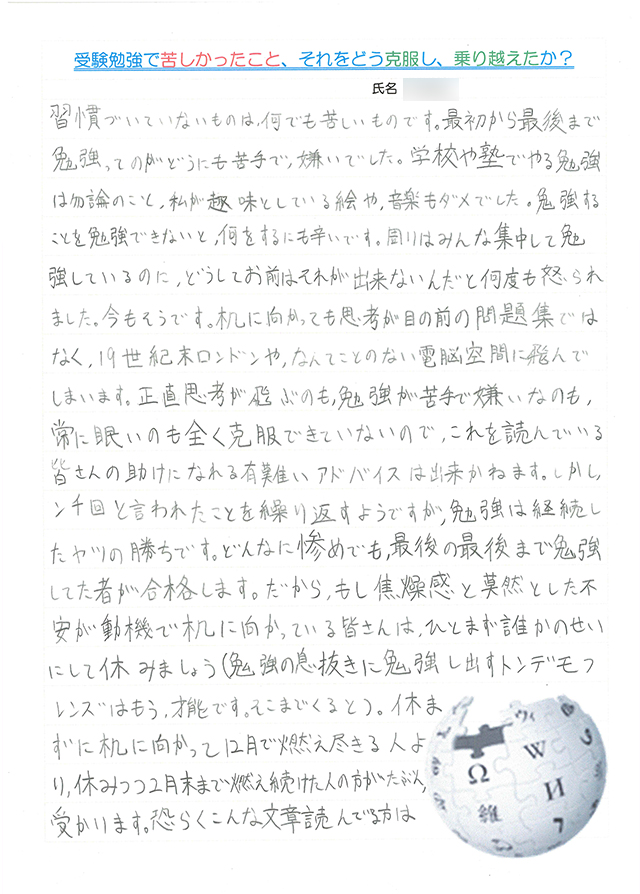 受験勉強で苦しかったこと、それをどう克服し、乗り越えたか？
氏名
習慣づいていないものは、何でも苦しいものです。最初から最後まで
勉強ってのがどうにも苦手で、嫌いでした。学校や塾でやる勉強
は勿論のこと、私が趣味としている絵や、音楽もダメでした。勉強する
ことを勉強できないと、何をするにも辛いです。周りはみんな集中して勉
強しているのに、どうしてお前はそれが出来ないんだと何度も怒られ
ました。今もそうです。机に向かっても思考が目の前の問題集では
なく、19世紀末ロンドンや、なんてことのない電脳空間に飛んで
しまいます。正直思考が飛ぶのも、勉強が苦手で嫌いなのも、
常に眠いのも全く克服できていないので、これを読んでいる
皆さんの助けになれる有難いアドバイスは出来かねます。しかし、
ン千回と言われたことを繰り返すようですが、勉強は継続し
たヤツの勝ちです。どんなに惨めでも、最後の最後まで勉強
してた者が合格します。だから、もし焦燥感と莫然とした不
安が動機で机に向かっている皆さんは、ひとまず誰かのせい
にして休みましょう(勉強の息抜きに勉強し出すトンデモフ
レンズはもう、才能です。そこまでくると)。休ま
ずに机に向かって12月で燃え尽きる人よ
り、休みつつ2月末まで燃え続けた人の方がたぶん、
受かります。恐らくこんな文章読んでる方は
Ω
W
И
維
ウィ
7